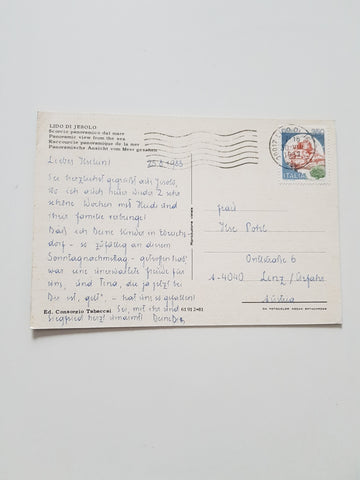 LIDO DI JESOLO
Scorcio panoramico dal mare
Panoramic view from the sea
Raccourcie panoramique de la mer
Panoramische Ansicht vom Meer gesehen
25.8.1983
Sei herzlichst gegrüßt aus Jesolo,
wo ich auch heuer wieder 2 sehr
schöne Wochen mit Heidi und
ihrer Familie verbringe!
Daß ich Deine Kinder in
dorf - so zufällig an diesem
Sonntagnachmittag - getroffen hab
war eine unerwartete Freude für
uns, und Tina, die ja jetzt bei
Dir ist, - hat uns so gefallen!
Sei, mit ihr und
Siegfried herzl. umarmt! Deine
Ed. Consorzio Tabaccai
61 91 2-81
ITALIA
Frau
Ilse Pohl
6
A-4040 Linz/Urfahr
Austria